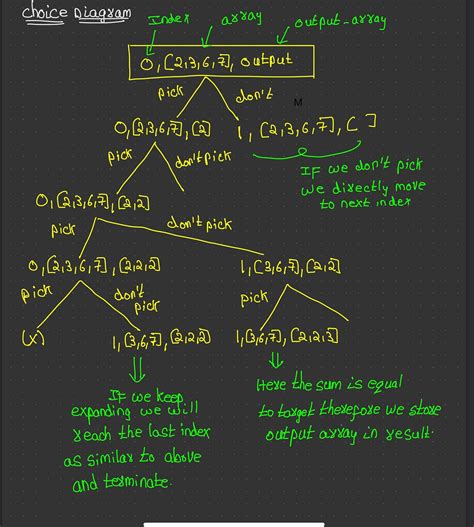 choice Diagram
Index array output-array
0, [2,3,6,7], output
pick don't
M
0,[2,3,6,7],[2] 1, [2,3,6,7], [ ]
pick don't pick
IF we don't pick
we directly move
to next index
0,[2,3,6,7],[2,2]
pick don't pick
0,[2,3,6,7],[2,2,2] 1,[3,6,7],[2,2]
pick don't pick pick
(x) 1,[3,6,7],[2,2,2] 1,[3,6,7],[2,2,3]
IF we keep
expanding we will
reach the last index
as similar to above
and terminate.
Here the sum is equal
to target therefore we store
output array in result.